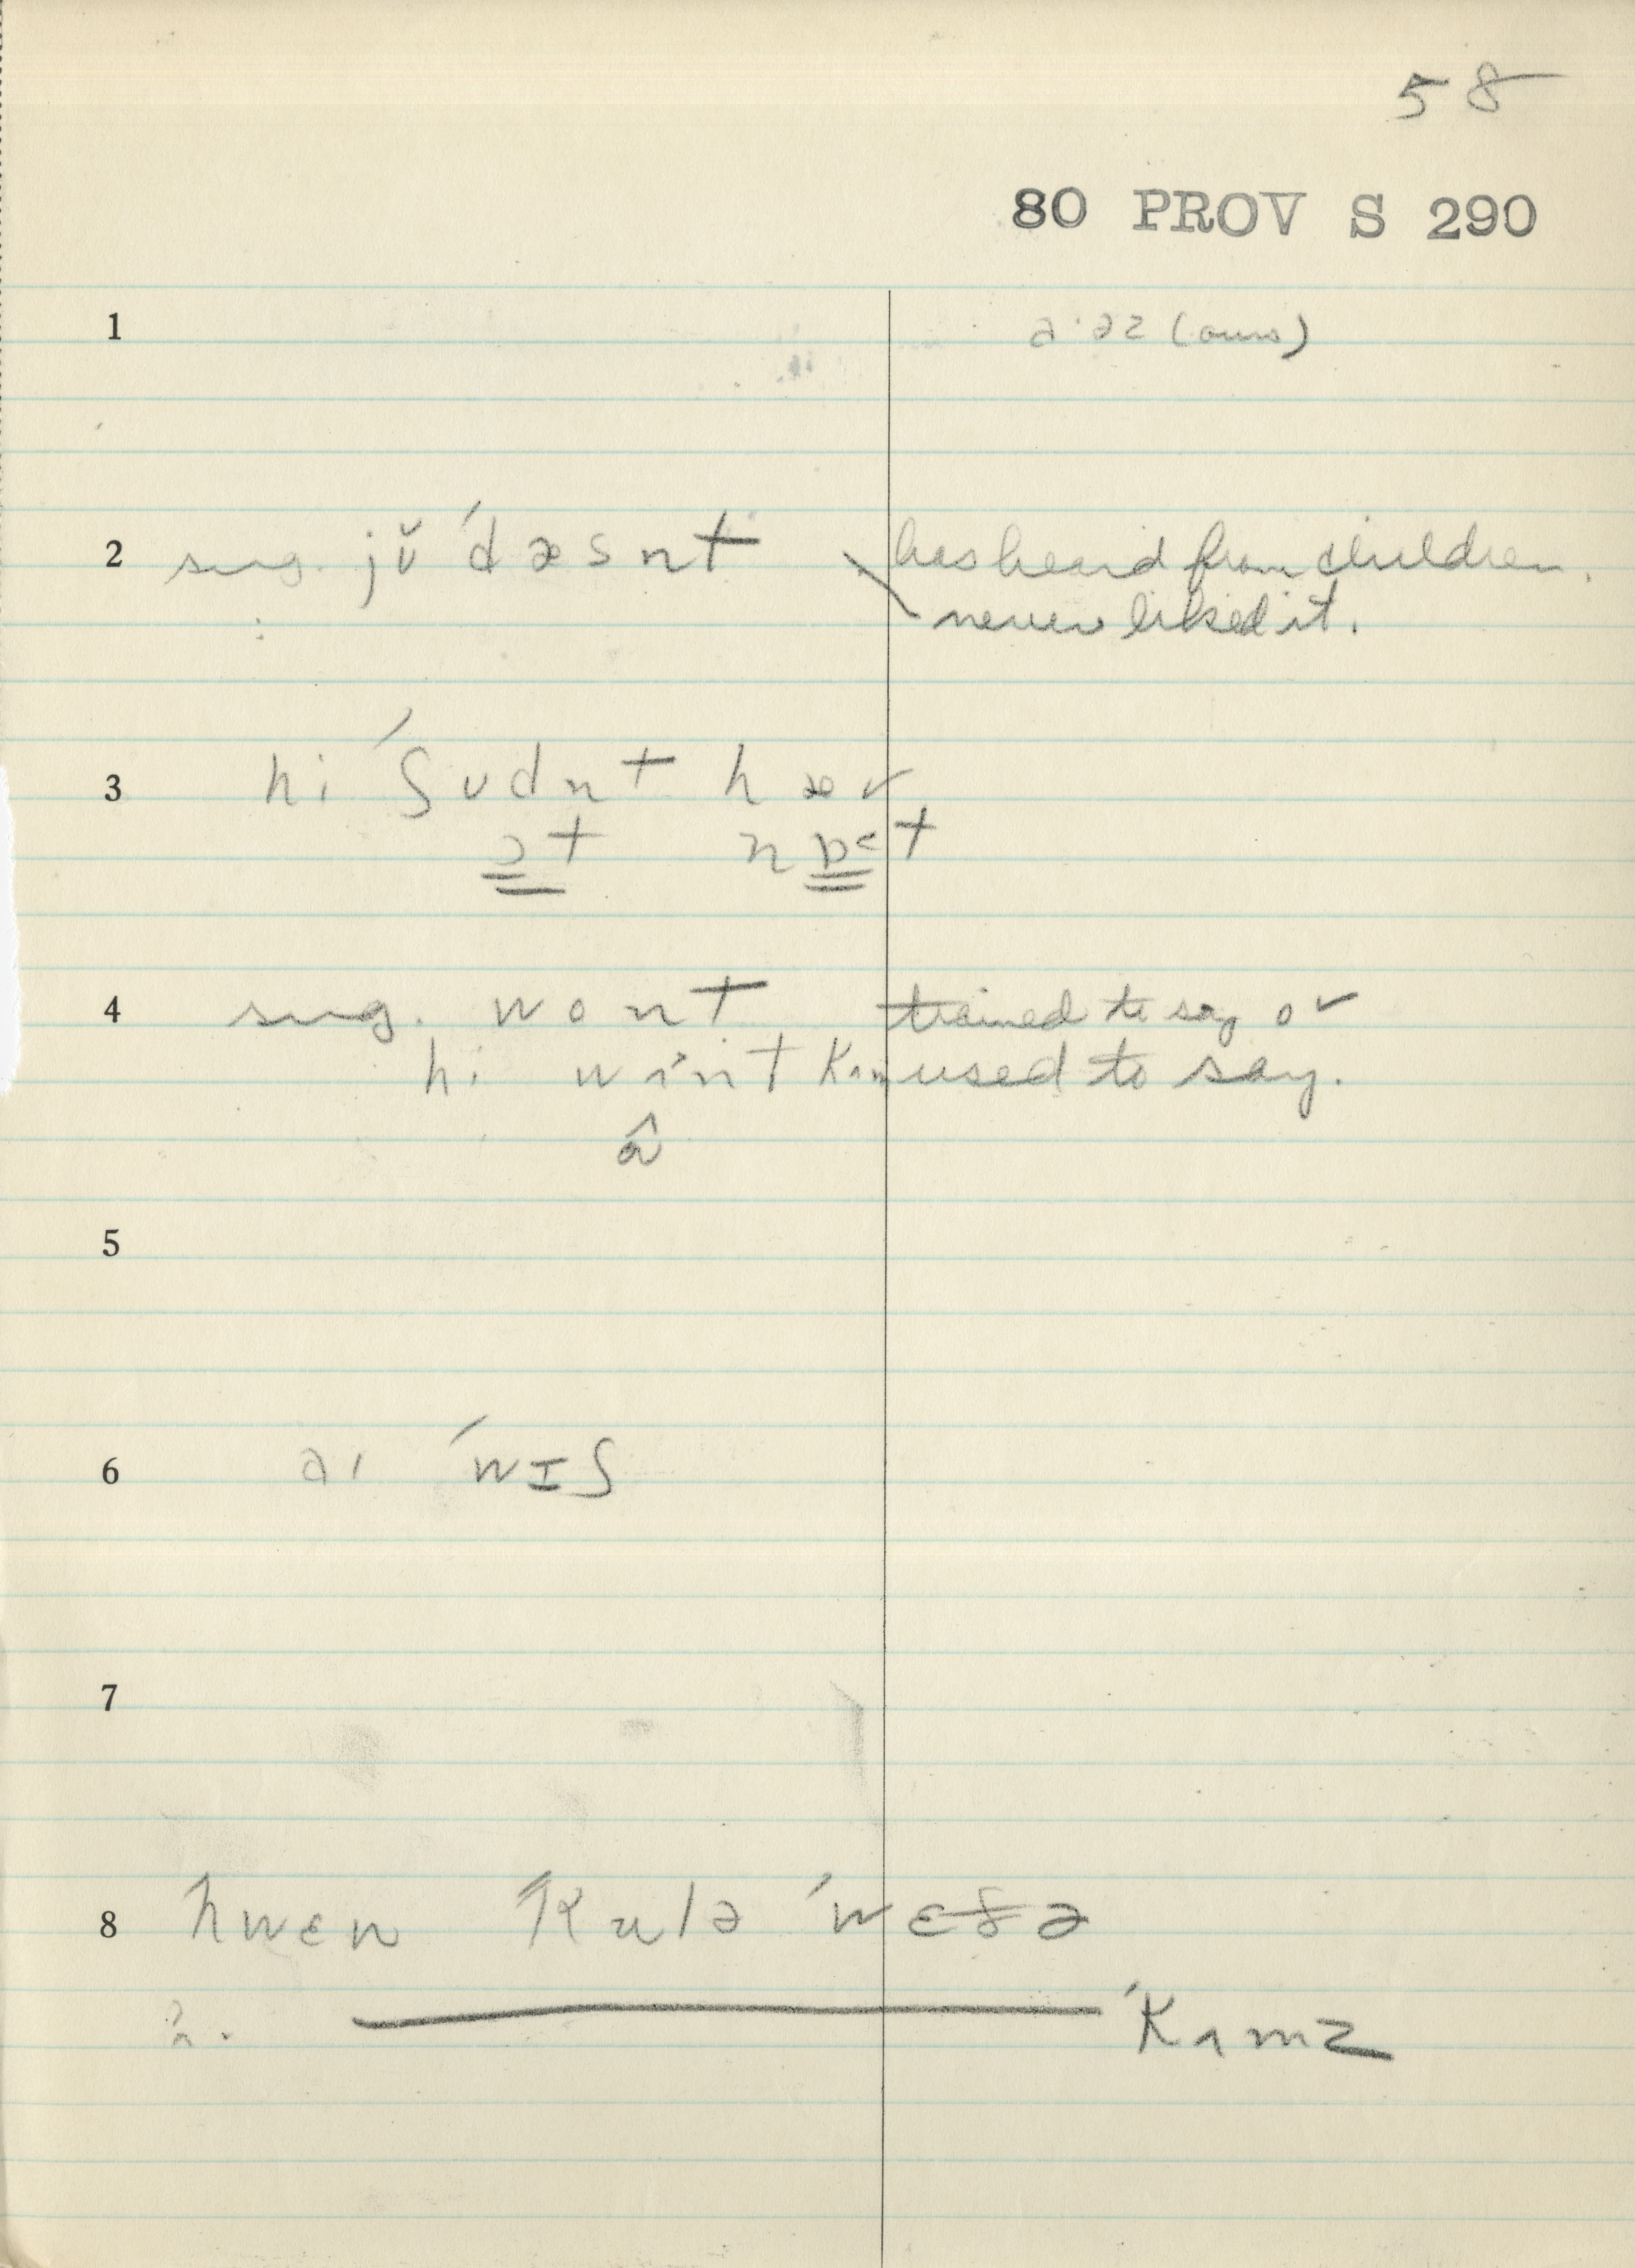 58
80 PROV S 290
1 a·əz (ours)
2 sug. jŭ ˈdæsnt has heard from children.
never liked it.
3 hi ˈʃʊdnt hæv
ɔt nɒt
4 sug. wont trained to say or
hi wint kʌm used to say.
5
6 aɪ ˈwɪʃ
7
8 hwɛn kulə ˈwɛðə
ˈkʌmz